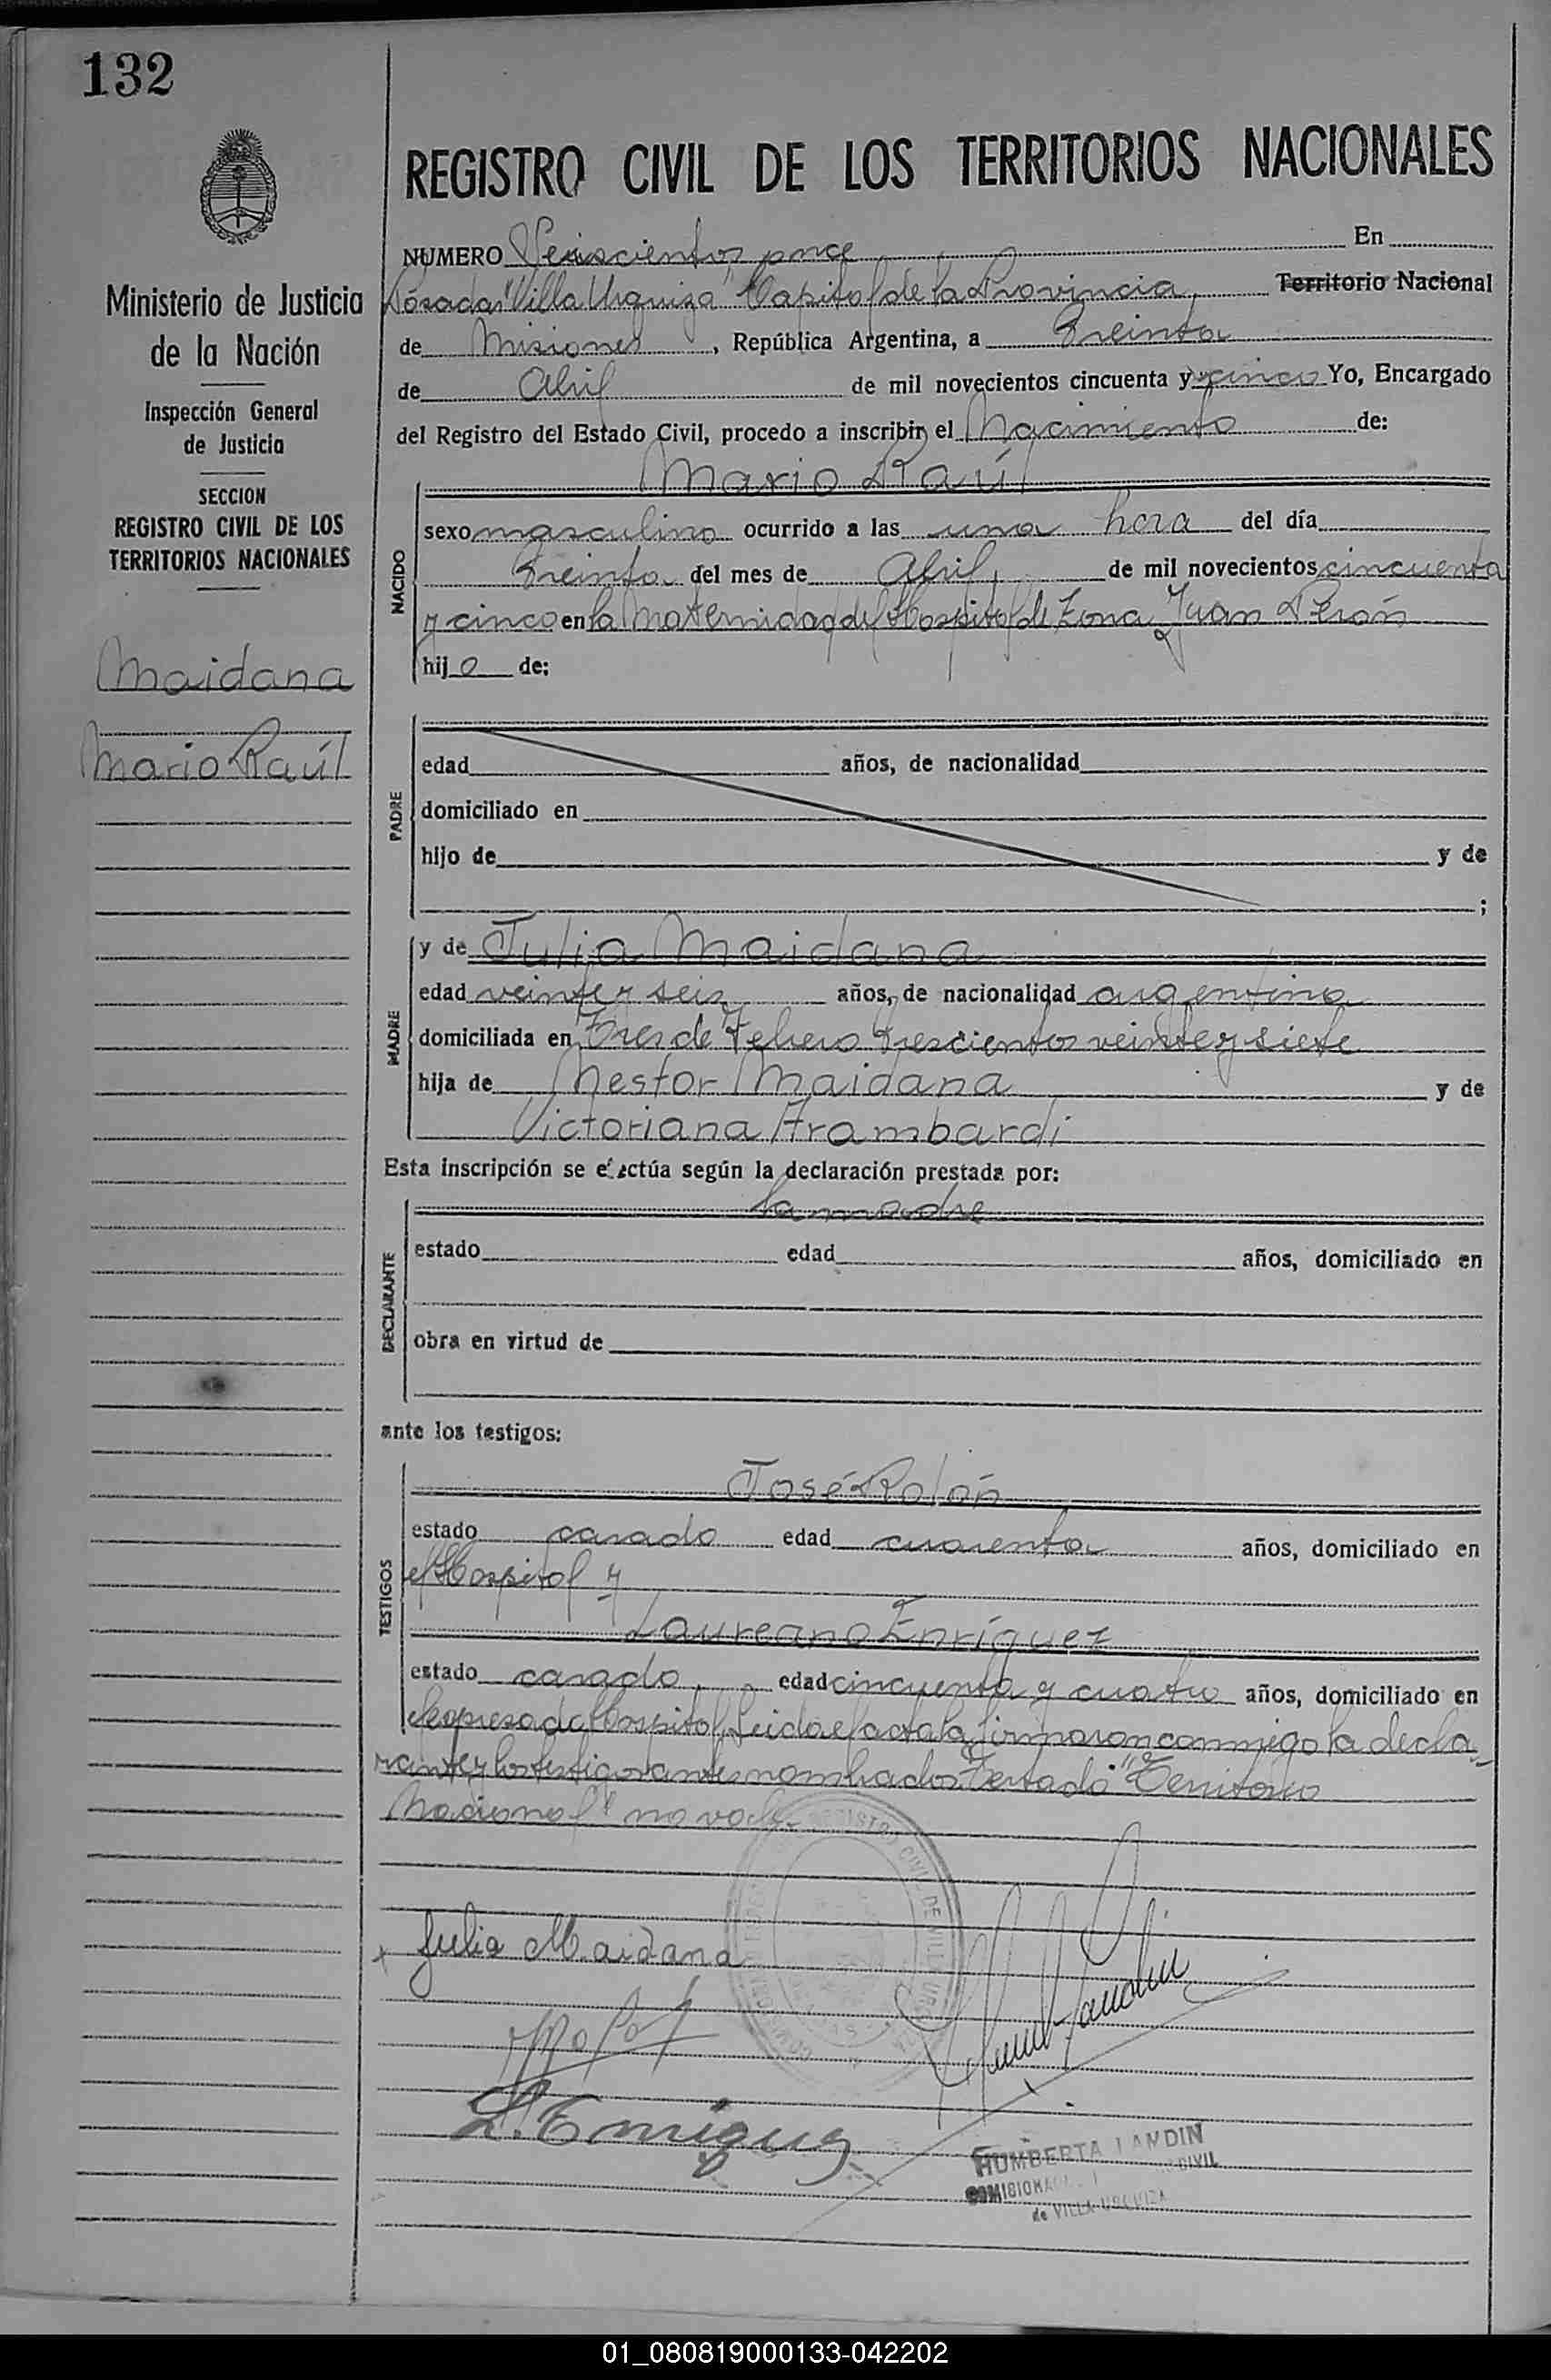 132
REGISTRO CIVIL DE LOS TERRITORIOS NACIONALES
Ministerio de Justicia
de la Nación
Inspección General
de Justicia
SECCION
REGISTRO CIVIL DE LOS
TERRITORIOS NACIONALES
Maidana
Mario Raúl
NUMERO Seiscientos once En
Posadas "Villa Urquiza" Capital de la Provincia, Territorio Nacional
de Misiones, República Argentina, a Treinta
de Abril de mil novecientos cincuenta y cinco Yo, Encargado
del Registro del Estado Civil, procedo a inscribir el Nacimiento de:
Mario Raúl
NACIDO
sexo masculino ocurrido a las una hora del día
Treinta del mes de Abril, de mil novecientos cincuenta
y cinco en la Maternidad del Hospital de Zona Juan Perón
hijo de:
PADRE
edad años, de nacionalidad
domiciliado en
hijo de y de
;
MADRE
y de Julia Maidana
edad veinte y seis años, de nacionalidad argentina
domiciliada en Tres de Febrero trescientos veinte y siete
hija de Nestor Maidana y de
Victoriana Arambardi
Esta inscripción se efectúa según la declaración prestada por:
la madre
DECLARANTE
estado edad años, domiciliado en
obra en virtud de
ante los testigos:
TESTIGOS
José Rolón
estado casado edad cuarenta años, domiciliado en
el Hospital y
Laureano Enríquez
estado casado, edad cincuenta y cuatro años, domiciliado en
el expresado Hospital. Leida el acta la firmaron conmigo la decla-
rante y los testigos antes nombrados. Testado "Territorio
Nacional" no vale.
Julia Maidana
L. Enriquez
HUMBERTA LANDIN
CIVIL
de VILLA URQUIZA
01_080819000133-042202